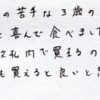 の苦手な3歳の
と喜んで食べました
札内で買えるの
も買えると良いと思